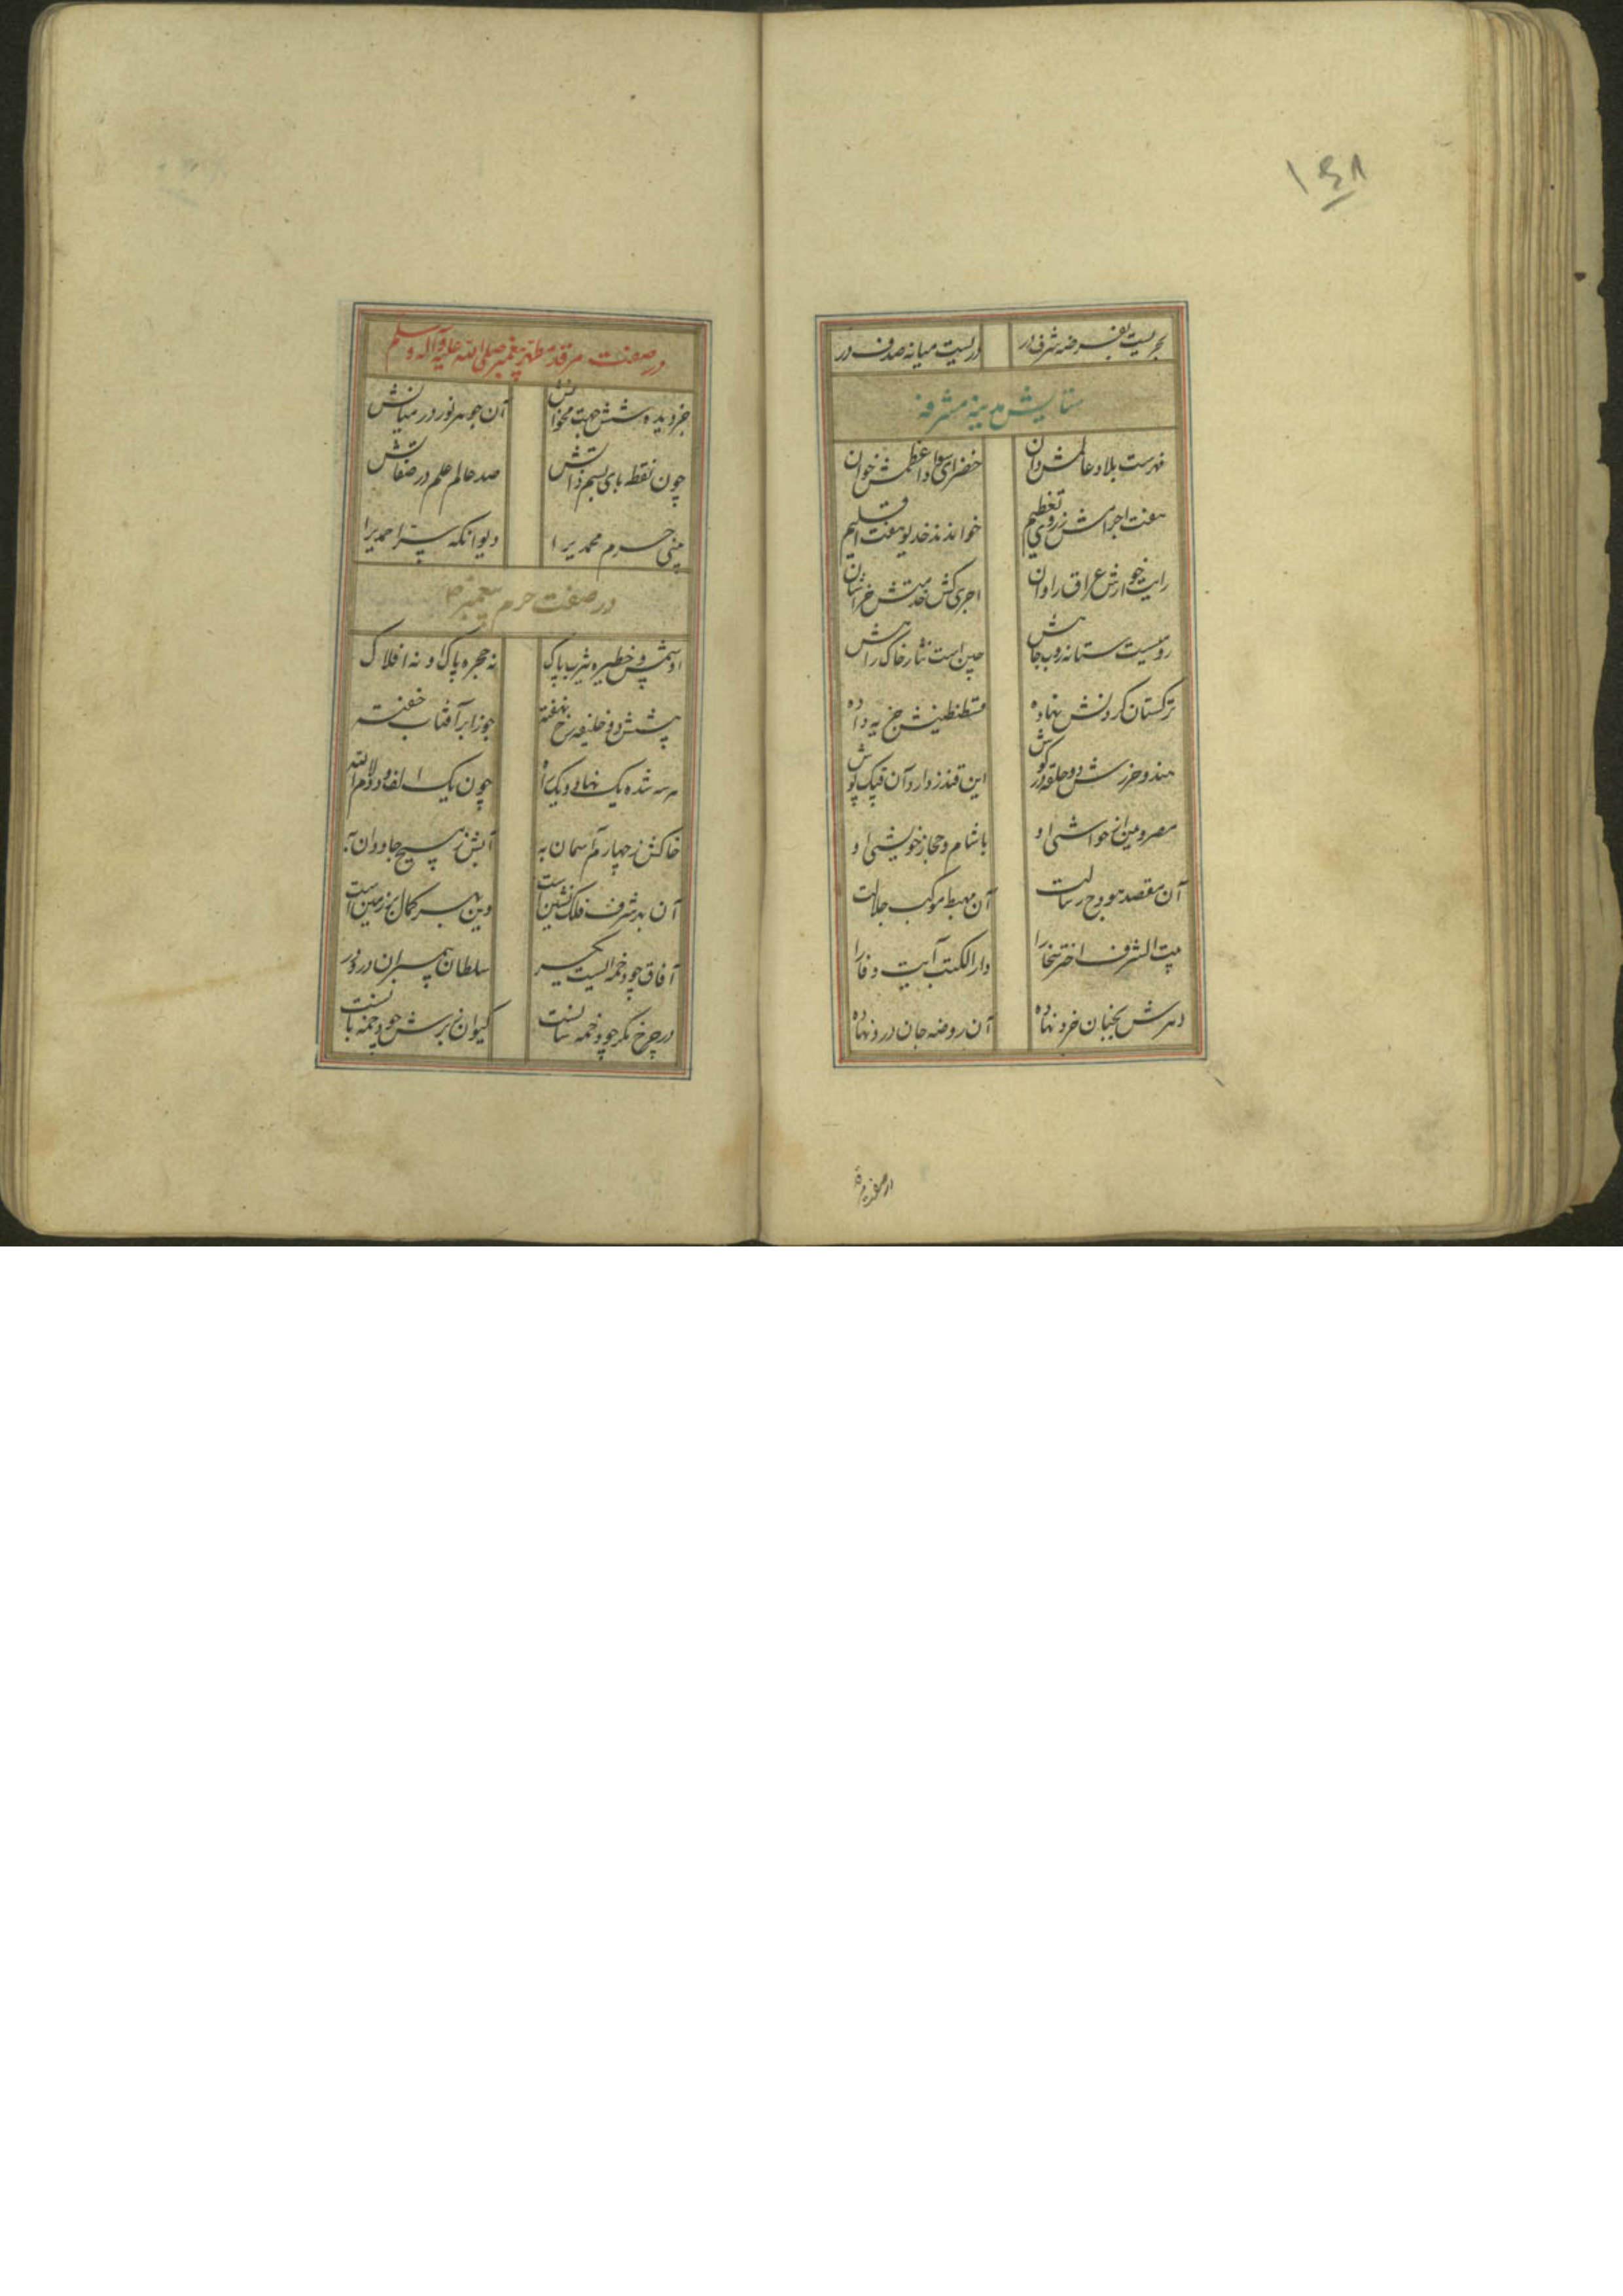 ۱۴۸
بحریست بفرضه شرف در دریست میانه صدف در
ستایش مدینه مشرفه
فهرست بلاد عالمش دان خضرای سواد اعظمش خوان
هفت اجرامش ز روی تعظیم خوانند خدیو هفت اقلیم
رایت خوارش عراق را دان اجری کش خدمتش خراسان
رومیست ستانه روب جاهش چین است نثار خاک راهش
ترکستان گردنش نهاده قسطنطینش جزیه داده
هند و خزرش دو حلقه در گوش این قندز دار و آن قپک پوش
مصر و یمن از حواشی او با شام و حجاز خویشی او
آن مقصد هودج رسالت آن مهبط موکب جلالت
بیت الشرف اختر سخا را دار الکتب آیت وفا را
دهرش بجنان خرد نهاده آن روضه جان درو نهاده
در صفت مرقد
در صفت مرقد مطهر پیغمبر صلی الله علیه و آله و سلم
جز دیده شش جهت مخوانش آن جوهر نور در میانش
چون نقطه بای بسم ذاتش صد عالم علم در صفاتش
بینی حرم محمدی را دیوانکه ستر احمدی را
در صفت حرم پیغمبر ص
او شمس و حظیره یثرب پاک نه حجره پاک او نه افلاک
پیشش دو خلیفه رخ نهفته جوزا بر آفتاب خفته
هر سه شده یک نهاد و یک راه چون یک الف و دو لام الله
خاکش ز چهارم آسمان به آبش ز مسیح جاودان به
آن بدر شرف فلک نشین است وین بهر کمال بر زمین است
آفاق چو دخمه ایست یکسر سلطان پیمبران درو در
در چرخ نگر چو دخمه سانست کیوان ز برش چو دخمه بانست